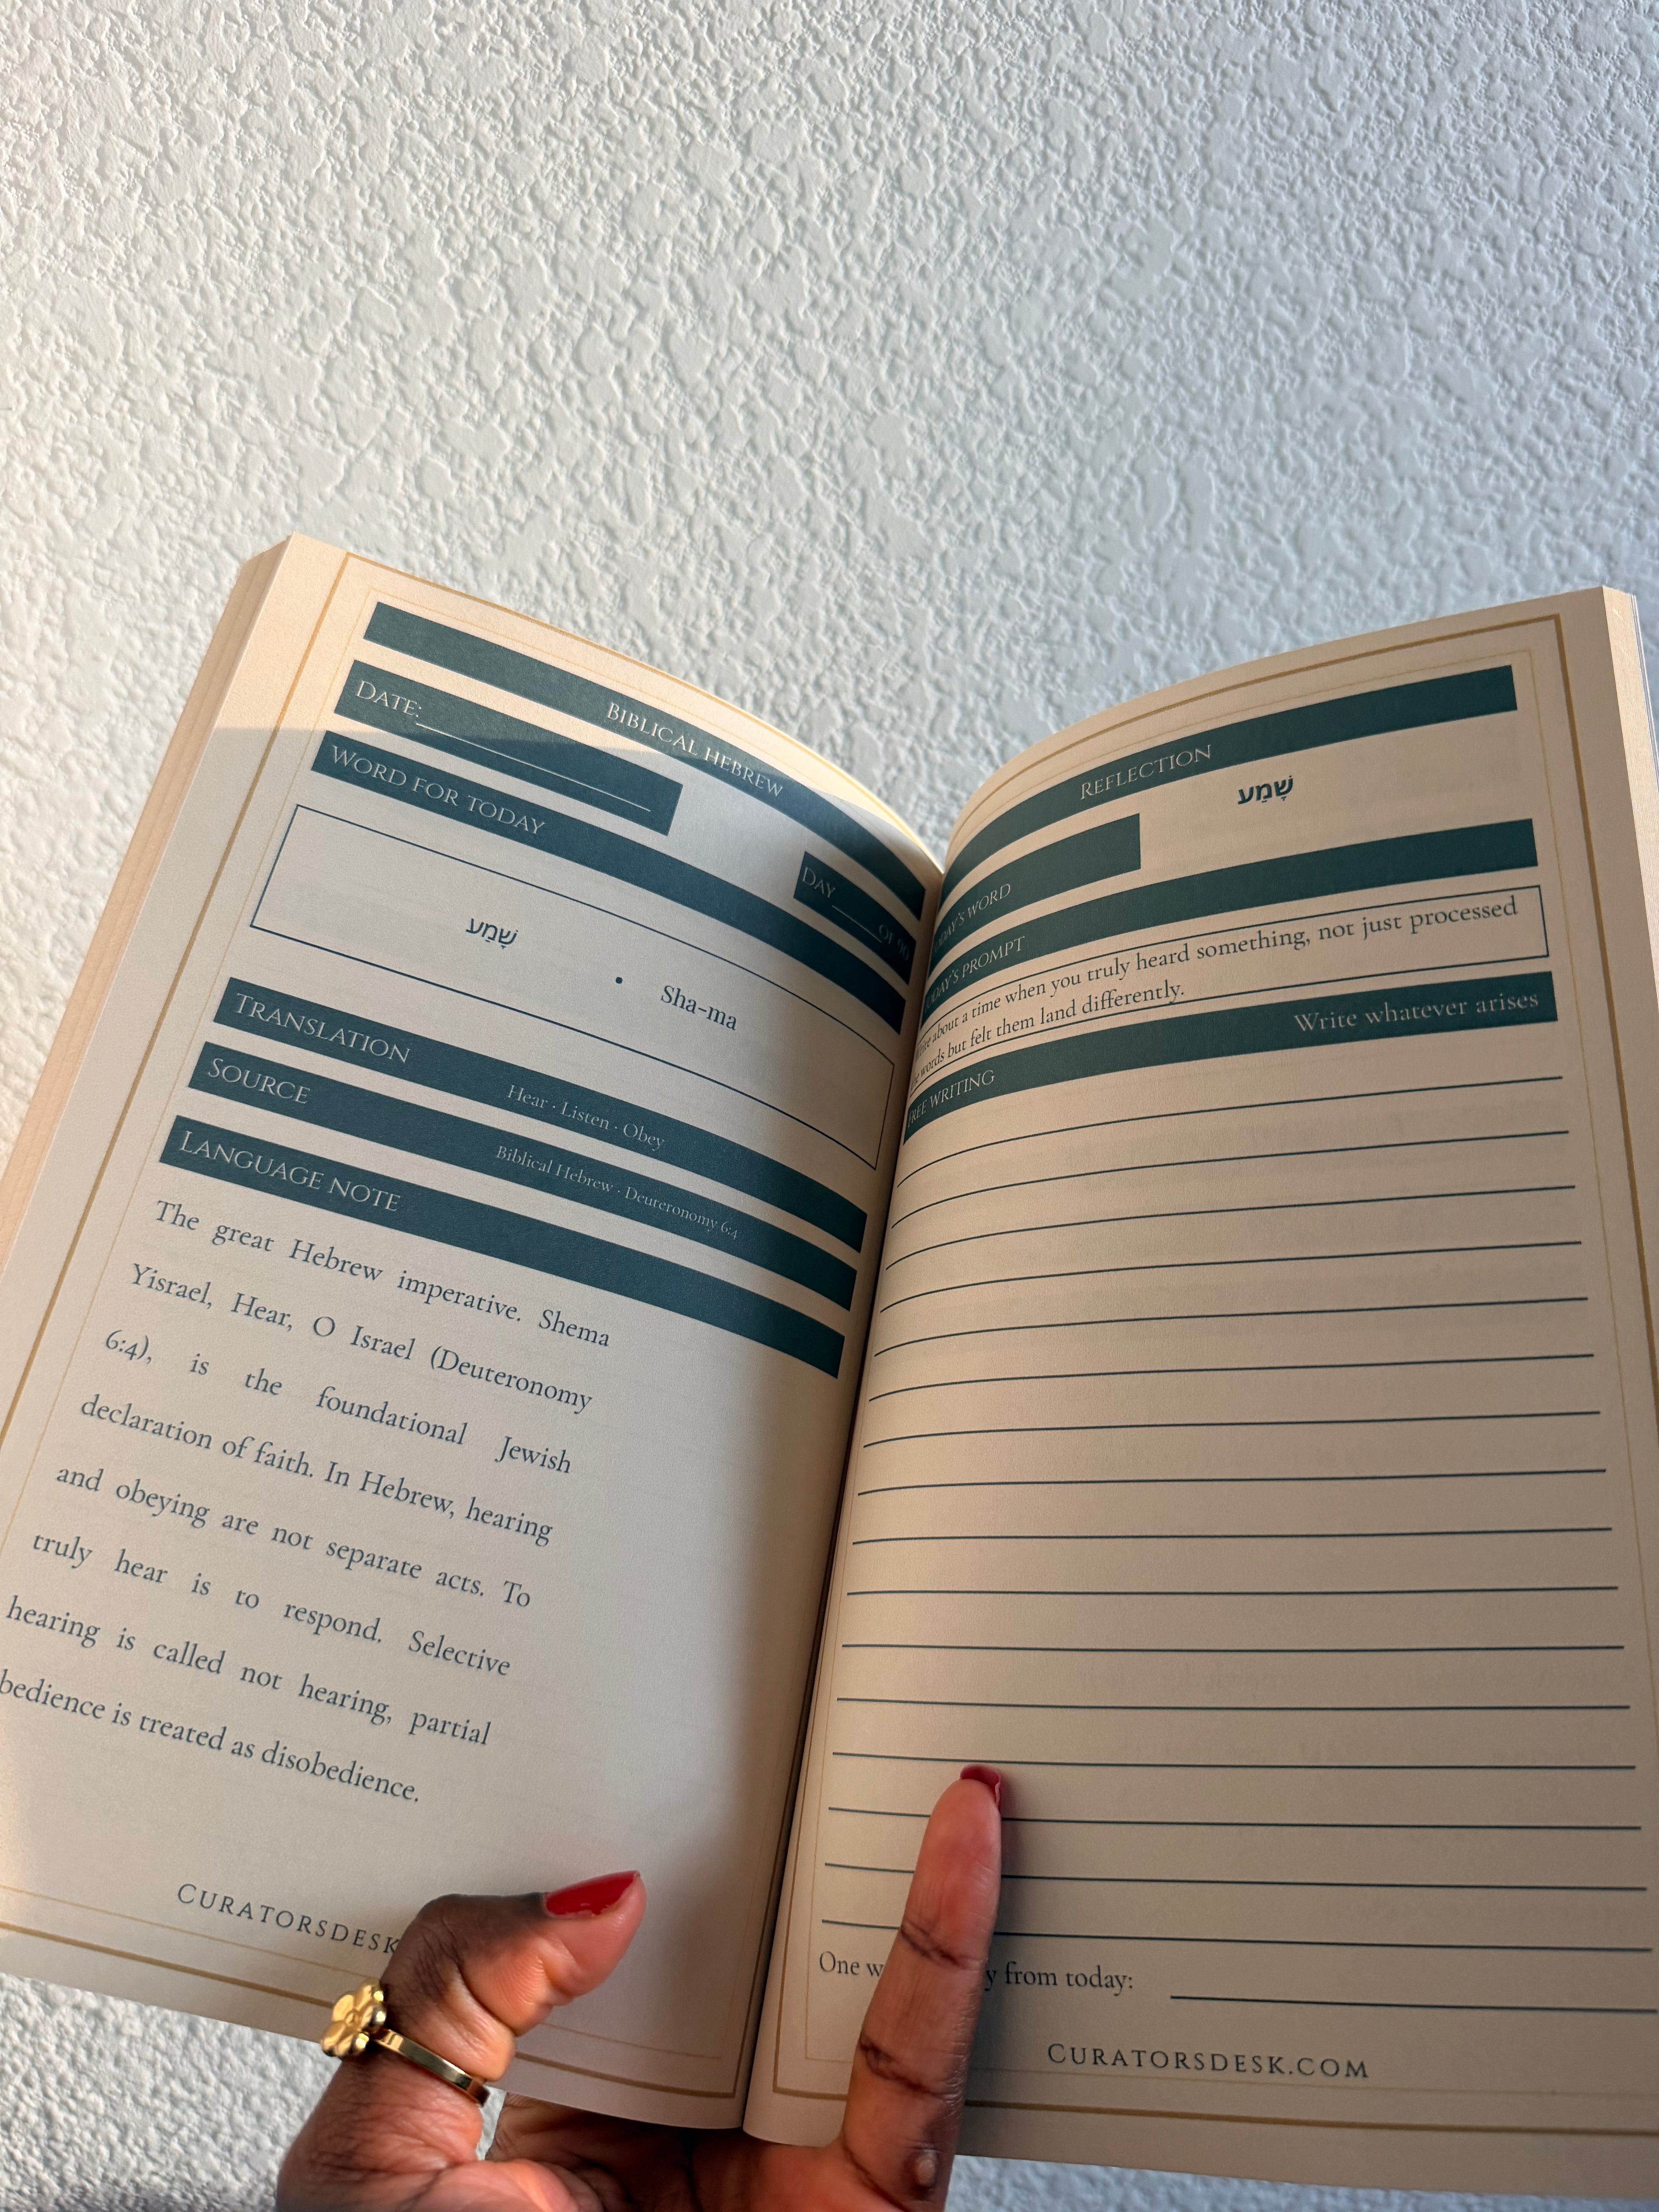 BIBLICAL HEBREW
DATE:
DAY OF 90
WORD FOR TODAY
שָׁמַע • Sha-ma
TRANSLATION Hear · Listen · Obey
SOURCE Biblical Hebrew · Deuteronomy 6:4
LANGUAGE NOTE
The great Hebrew imperative. Shema
Yisrael, Hear, O Israel (Deuteronomy
6:4), is the foundational Jewish
declaration of faith. In Hebrew, hearing
and obeying are not separate acts. To
truly hear is to respond. Selective
hearing is called not hearing, partial
bedience is treated as disobedience.
CURATORSDESK
REFLECTION
TODAY'S WORD שָׁמַע
TODAY'S PROMPT
Write about a time when you truly heard something, not just processed
the words but felt them land differently.
FREE WRITING Write whatever arises
One from today:
CURATORSDESK.COM